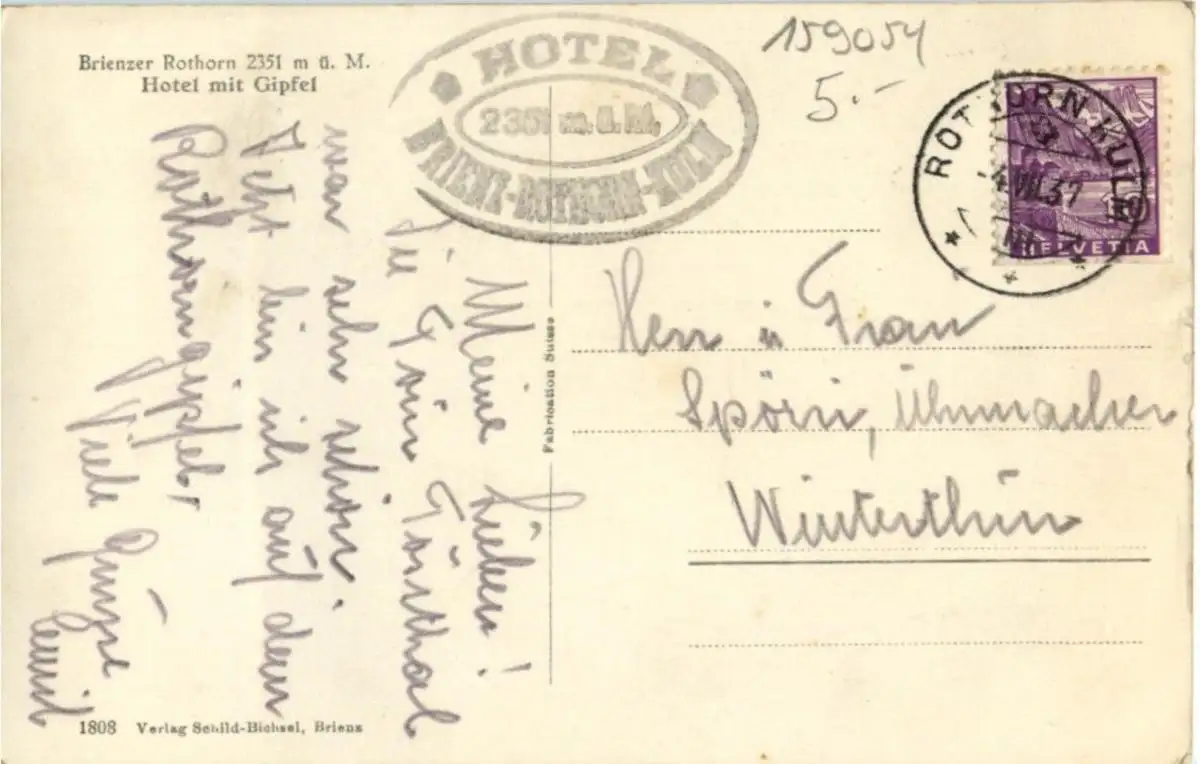 Brienzer Rothorn 2351 m ü. M.
Hotel mit Gipfel
HOTEL
2351 m.ü.M.
BRIENZ-ROTHORN-KULM
159054
5.-
ROTHORN-KULM
VII.37
HELVETIA
Meine Lieben!
Die Tour
war sehr schön.
Jetzt bin ich auf dem
Rothorngipfel,
Viele Grüsse
Fabrication Suisse
Herr u Frau
Spörri, Uhrmacher
Winterthur
1808 Verlag Schild-Bichsel, Brienz